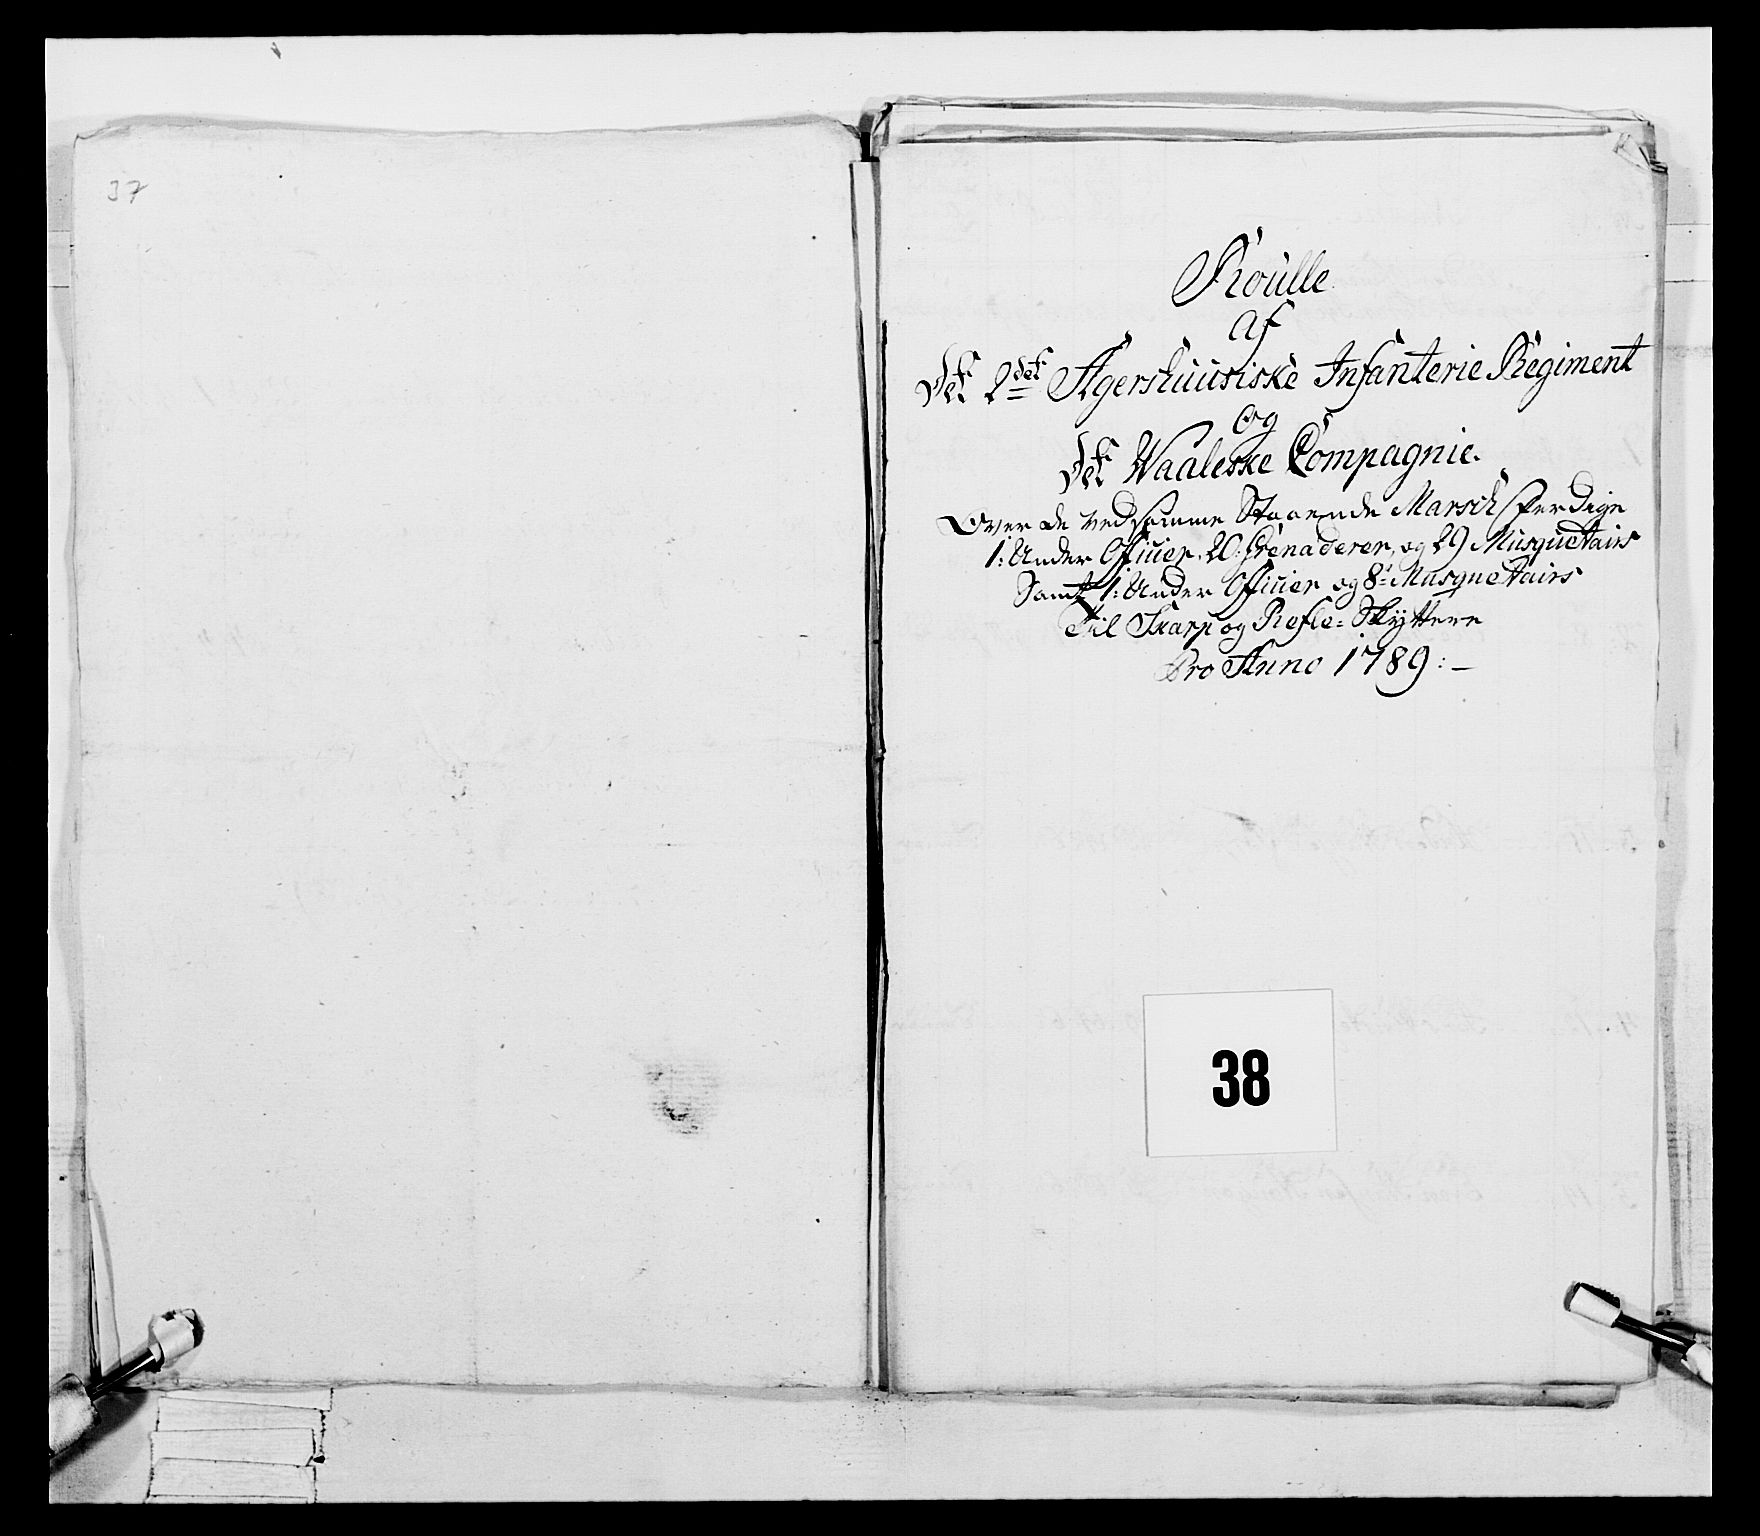 37
Roulle
af
det 2det Agershuusiske Infanterie Regiment
og
det Waaleske Compagnie.
Over de ved samme Staaende Marsch ferdige
1: Under Officier, 20: Grenaderer, og 29 Musquetairs
Samt 1: Under Officier og 8t Musquetairs
Til Skarp og Refle= Skyttere
Pro Anno 1789:—
38